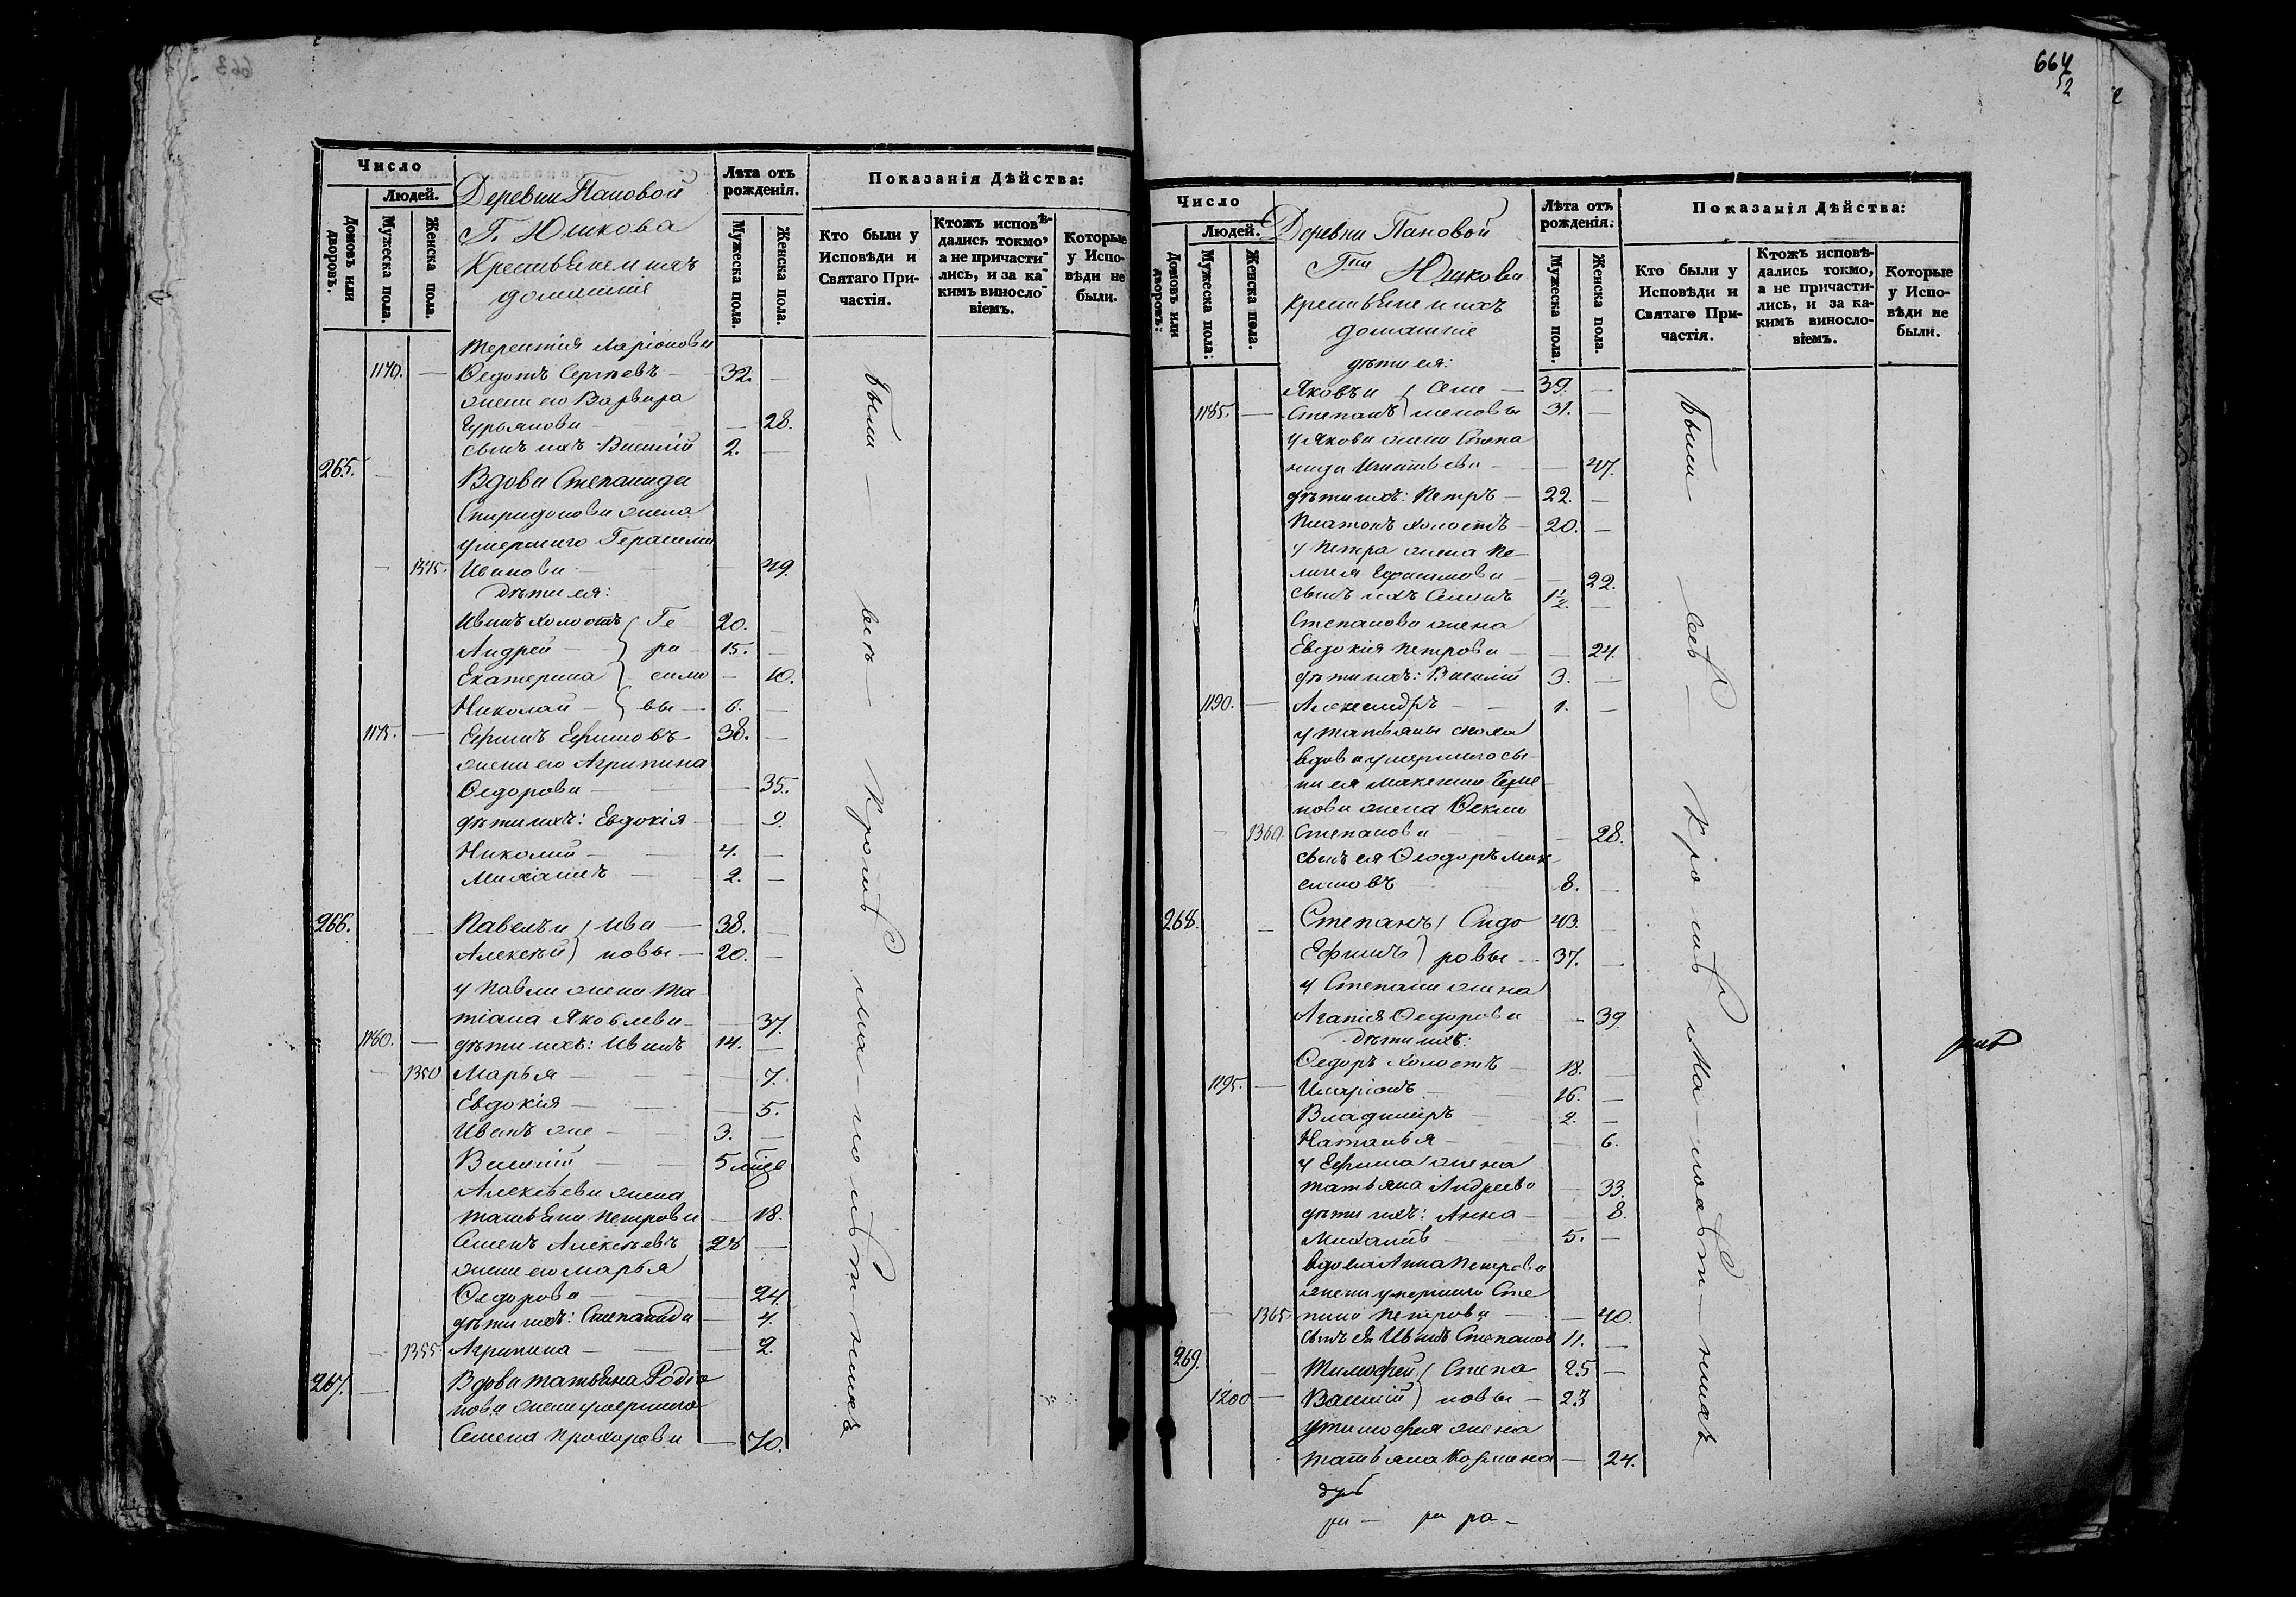 664
52
Число
Людей.
Домовъ или дворовъ.
Мужеска пола.
Женска пола.
Деревни Пановой
Г. Юшкова
Крестьяне и ихъ
домашніе
Лѣта отъ рожденія.
Мужеска пола.
Женска пола.
Показанія Дѣйства:
Кто были у Исповѣди и Святаго Причастія.
Ктожъ исповѣдались токмо, а не причастились, и за какимъ винословіемъ.
Которые у Исповѣди не были.
Терентія Ларіонова
1170. — Ѳедотъ Сергѣевъ — 32. —
жена его Варвара
Гурьянова — 28.
сынъ ихъ Василій 2. —
265. — Вдова Степанида
Спиридонова жена
умершаго Герасима
— 1345. Иванова — 49.
Дѣти ея:
Иванъ холостъ Ге 20. —
Андрей — ра — 15. —
Екатерина симо — 10.
Николай — вы — 6. —
1175. — Ефимъ Ефимовъ 38. —
жена его Агрипина
Ѳедорова — 35.
дѣти ихъ: Евдокія — 9.
Николай — 4. —
Михаилъ — 2. —
266. — Павелъ и Ива — 38. —
Алексѣй новы — 20. —
у Павла жена Та
тіана Яковлева — 37.
1180. — дѣти ихъ: Иванъ 14. —
— 1350 Марья — 7.
Евдокія — 5.
Иванъ же — 3. —
Василій — 5
Алексѣева жена
Татьяна Петрова — 18.
Семенъ Алексѣевъ 28 —
жена его Марья
Ѳедорова — 24.
дѣти ихъ: Степанида — 4.
— 1355 Агрипина — 2.
267. — Вдова Татьяна Родіо
нова жена умершаго
Семена Прохорова — 70.
Были — всѣ — Кромѣ мало — лѣт — нихъ
Число
Людей.
Домовъ или дворовъ:
Мужеска пола:
Женска пола.
Деревни Пановой
Гна Юшкова
крестьяне и ихъ
домашніе
Лѣта отъ рожденія:
Мужеска пола.
Женска пола.
Показанія Дѣйства:
Кто были у Исповѣди и Святаго Причастія.
Ктожъ исповѣдались токмо, а не причастились, и за какимъ винословіемъ.
Которые у Исповѣди не были.
дѣти ея:
Яковъ и Семе — 39. —
1185. — Степанъ меновы 31. —
у Якова жена Степа
нида Игнатьева — 47.
дѣти ихъ: Петръ — 22. —
Платонъ холостъ — 20. —
у Петра жена Пе-
лагея Ефимова — 22.
сынъ ихъ Семенъ 1½. —
Степанова жена
Евдокія Петрова — 24.
дѣти ихъ: Василій 3. —
1190. — Александръ — 1. —
у Татьяны сноха
вдова умершаго сы-
на ея Максима Семе
нова жена Ѳекла
— 1360. Степанова — 28.
сынъ ея Ѳеодоръ Мак
симовъ 8. —
268. — Степанъ Сидо 43. —
Ефимъ ровы — 37. —
у Степана жена
Агапія Ѳедорова — 39
Дѣти ихъ:
Ѳедоръ холостъ — 18. —
1195. — Иларіонъ 16. —
Владиміръ 2. —
Наталья — 6.
у Ефима жена
Татьяна Андреева — 33.
дѣти ихъ: Анна — 8.
Михаилъ 5. —
вдова Анна Петрова
жена умершаго Сте
— 1365. пана Петрова — 40.
сынъ ея Иванъ Степановъ 11. —
269. — Тимофей Степа 25 —
1200 — Василій новы — 23
у Тимофея жена
Татьяна Козмина — 24.
Были всѣ — Кромѣ Мало — лѣт — нихъ
ра — ра ра —